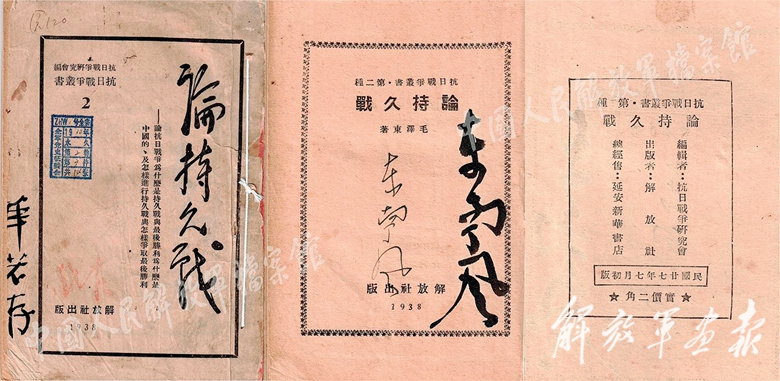 抗日戰爭研究會編
抗日戰爭叢書
2
論持久戰
——論抗日戰爭爲什麼是持久戰與最後勝利爲什麼是
中國的、及怎樣進行持久戰與怎樣爭取最後勝利
解放社出版
1938
抗日戰爭叢書·第二種
論持久戰
毛澤東著
解放社出版
1938
抗日戰爭叢書·第二種
論持久戰
編輯者：抗日戰爭研究會
出版者：解放社
總經售：延安新華書店
民國廿七年七月初版
★實價二角★
中國人民解放軍檔案館
中國人民解放軍檔案館
解放军画报